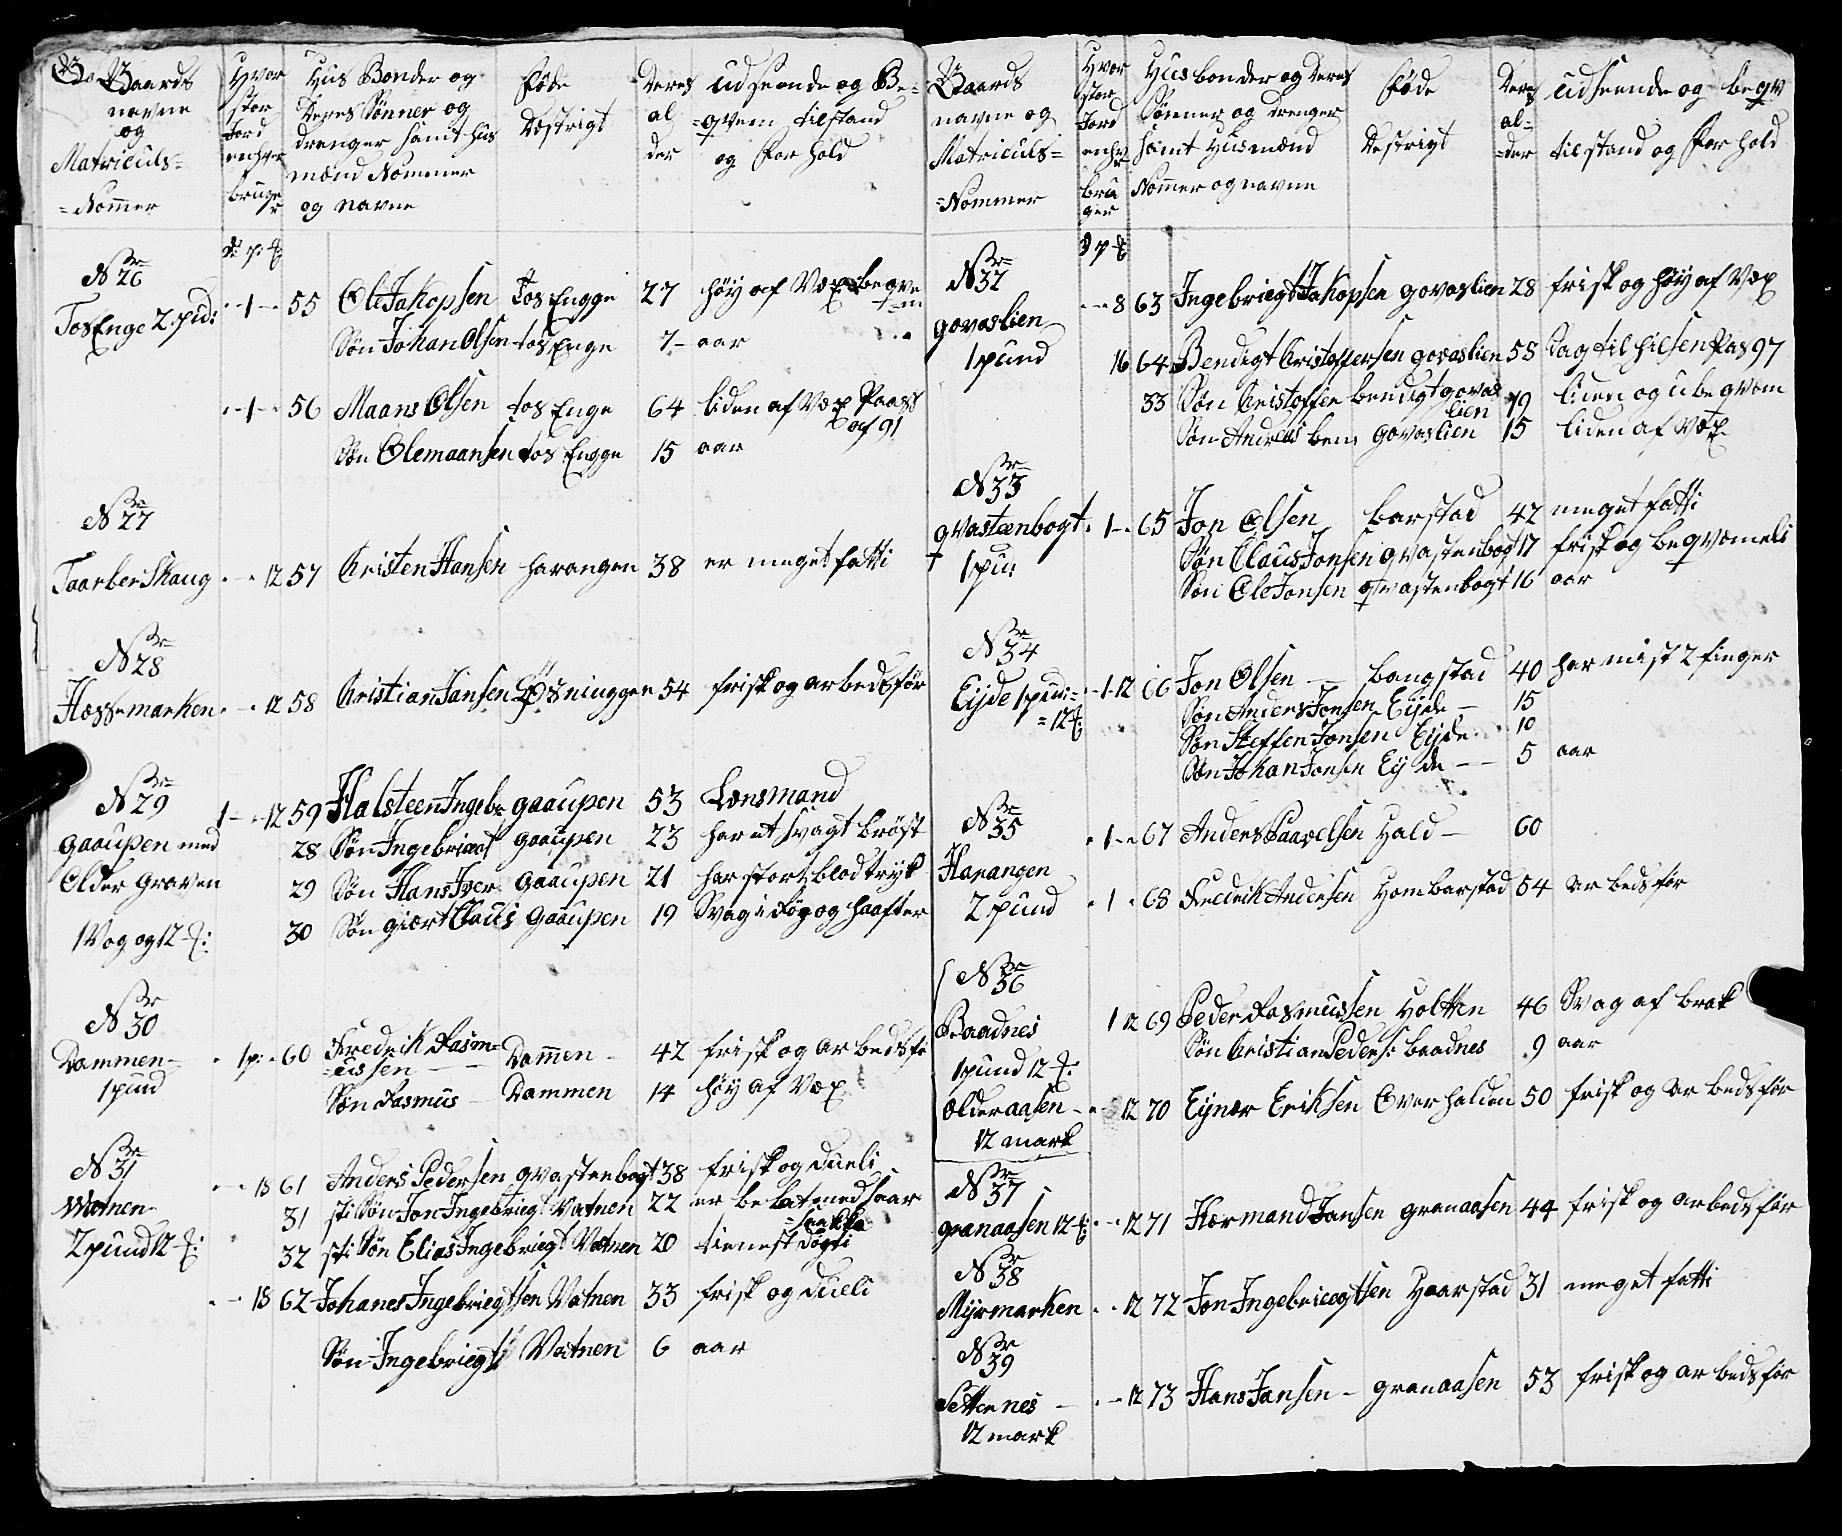 Gaards navne og Matriculs= =Nommer | Hvor stor Jord en hver bruger | Hus Bonder og Deres Sønner og drenger samt hus mænd Nommer og navne | føde Destrigt | Deres al der | udseende og Be= =qvem tilstand og for hold
No 26
Tos Enge 2 pd: 1 55 Ole Jakopsen Tos Engge 27 høy af Vex beqvem
Søn Johan Olsen tos Enge 7 aar
1 56 Maans Olsen tos Enge 64 liden af Vex Paass af 91
Søn Ole maansen tos Engge 15 aar
No 27
Taarber Skaug 12 57 Christen Hansen harangen 38 er meget fatti
No 28
Hoss marken 12 58 Christian Jansen 54 frisk og arbedsför
No 29
gaaupen med Older Graven 1 Vog og 12
1 12 59 Halsteen Ingebr gaaupen 53 Lensmand
28 Søn Ingebrigt gaaupen 23 har et svagt bröst
29 Søn Hans Iver gaaupen 21 har stort blod tryk
30 Søn giært Claus Gaaupen 19 Svag i Røg og haafter
No 30
Dammen 1 pund 1 p: 60 Fredrik Rasm= =ussen Dammen 42 frisk og ar bedsfø
Søn Rasmus Dammen 14 høy af Vex
No 31
Watnen 2 pund 12
18 61 Anders Pedersen qvastenbogt 38 frisk og dueli
31 sti Søn Jon Ingebriegt Vatnen 22 er be lat med saar
32 sti Søn Elias Ingebriegt Vatnen 20 tienest dögti
18 62 Johanes Ingebriegtsen Vatnen 33 frisk og dueli
Søn Ingebriegt Vatnen 6 aar
Gaards navne og Matriculs= =Nommer | Hvor stor Jord enhver bruger | Husbonder og Deres Sønner og drenger samt Husmænd Nommer og navne | føde Destrigt | Deres al= =der | udseende og beqv til stand og for hold
No 32
govaslien 1 pund 8 63 Ingebriegt Jakopsen govaslien 28 frisk og høy af Vex
16 64 Bendigt Cristoffersen govaslien 58 Pas 97
33 Søn Cristoffer bendigt govas lien 19 liden og ube qvem
Søn Andreas ben: govaslien 15 liden af Vext
No 33
qvasteenbogt 1 pu: 1 65 Jon Olsen barstad 42 meget fatti
Søn Claus Jonsen qvastenbogt 17 frisk og beqvemeli
Søn Ole Jonsen qvastenbogt 16 aar
No 34
Eijde 1 pund: =12 1 12 66 Jon Olsen bangstad 40 har mist 2 finger
Søn Anders Jonsen Eijde 15
Søn Steffen Jonsen Eijde 10
Søn Johan Jonsen Eijde 5 aar
No 35
Harangen 2 pund
1 67 Anders Paavelsen Hald 60
1 68 Fredrik Andersen Hombarstad 54 ar beds før
No 36
Baadnes 1 pund 12
1 12 69 Peder Rasmussen Holtten 46 Svag af brok
Søn Christian Peders: baadnes 9 aar
olderaasen 12 mark 12 70 Eijner Eriksen Overhalden 50 frisk og ar bedsför
No 37
granaasen 12 12 71 Hermand Jansen granaasen 44 frisk og arbedsför
No 38
Mijrmarken 12 72 Jon Ingebriegtsen Haarstad 31 meget fatti
No 39
Setternes 12 mark 12 73 Hans Jansen granaasen 53 frisk og ar bedsför